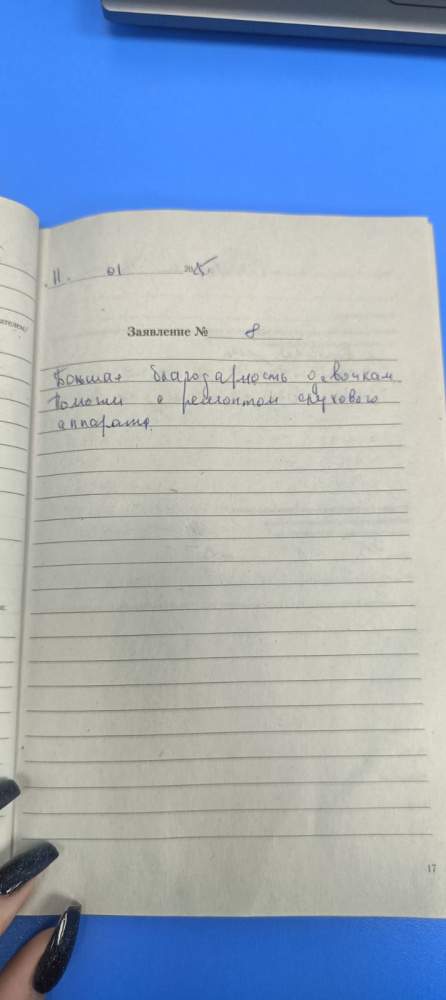 11. 01 2025 г.
Заявление № 8
Большая благодарность девочкам
Помогли с ремонтом слухового
аппарата.
17